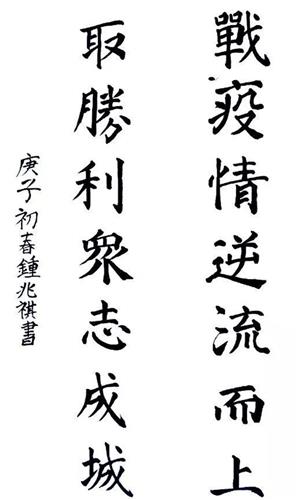 戰疫情逆流而上
取勝利眾志成城
庚子初春鍾兆祺書